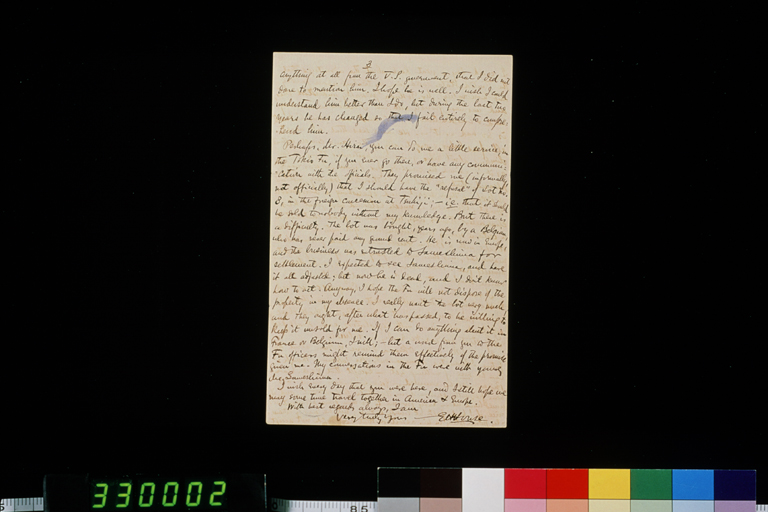 3
anything at all from the U.S. government, that I did not
dare to mention him. I hope he is well. I wish I could
understand him better than I do, but during the last two
years he has changed so that I fail entirely to compre-
hend him.
Perhaps, dear Hirai, you can do me a little service, in
the Tokio Fu, if you ever go there, or have any communi-
cation with the officials. They promised me (informally,
not officially) that I should have the "refusal" of Lot No.
3, in the foreign concession at Tsukiji; – i.e. that it should
be sold to nobody without my knowledge. But there is
a difficulty. The lot was bought, years ago, by a Belgian,
who has never paid any ground rent. He is now in Europe,
and the business was intrusted to Sameshima for
settlement. I expected to see Sameshima, and have
it all adjusted; but now he is dead, and I don't know
how to act. Anyway, I hope the Fu will not dispose of the
property in my absence. I really want the lot very much
and they ought, after what has passed, to be willing to
keep it unsold for me. If I can do anything about it in
France or Belgium, I will; – but a word from you to the
Fu officers might remind them effectively of the promise
given me. My conversations in the Fu were with young
Mr. Sameshima.
I wish every day that you were here, and I still hope we
may some time travel together in America & Europe.
With best regards always, I am
Very truly yours
E H House.
330002
85